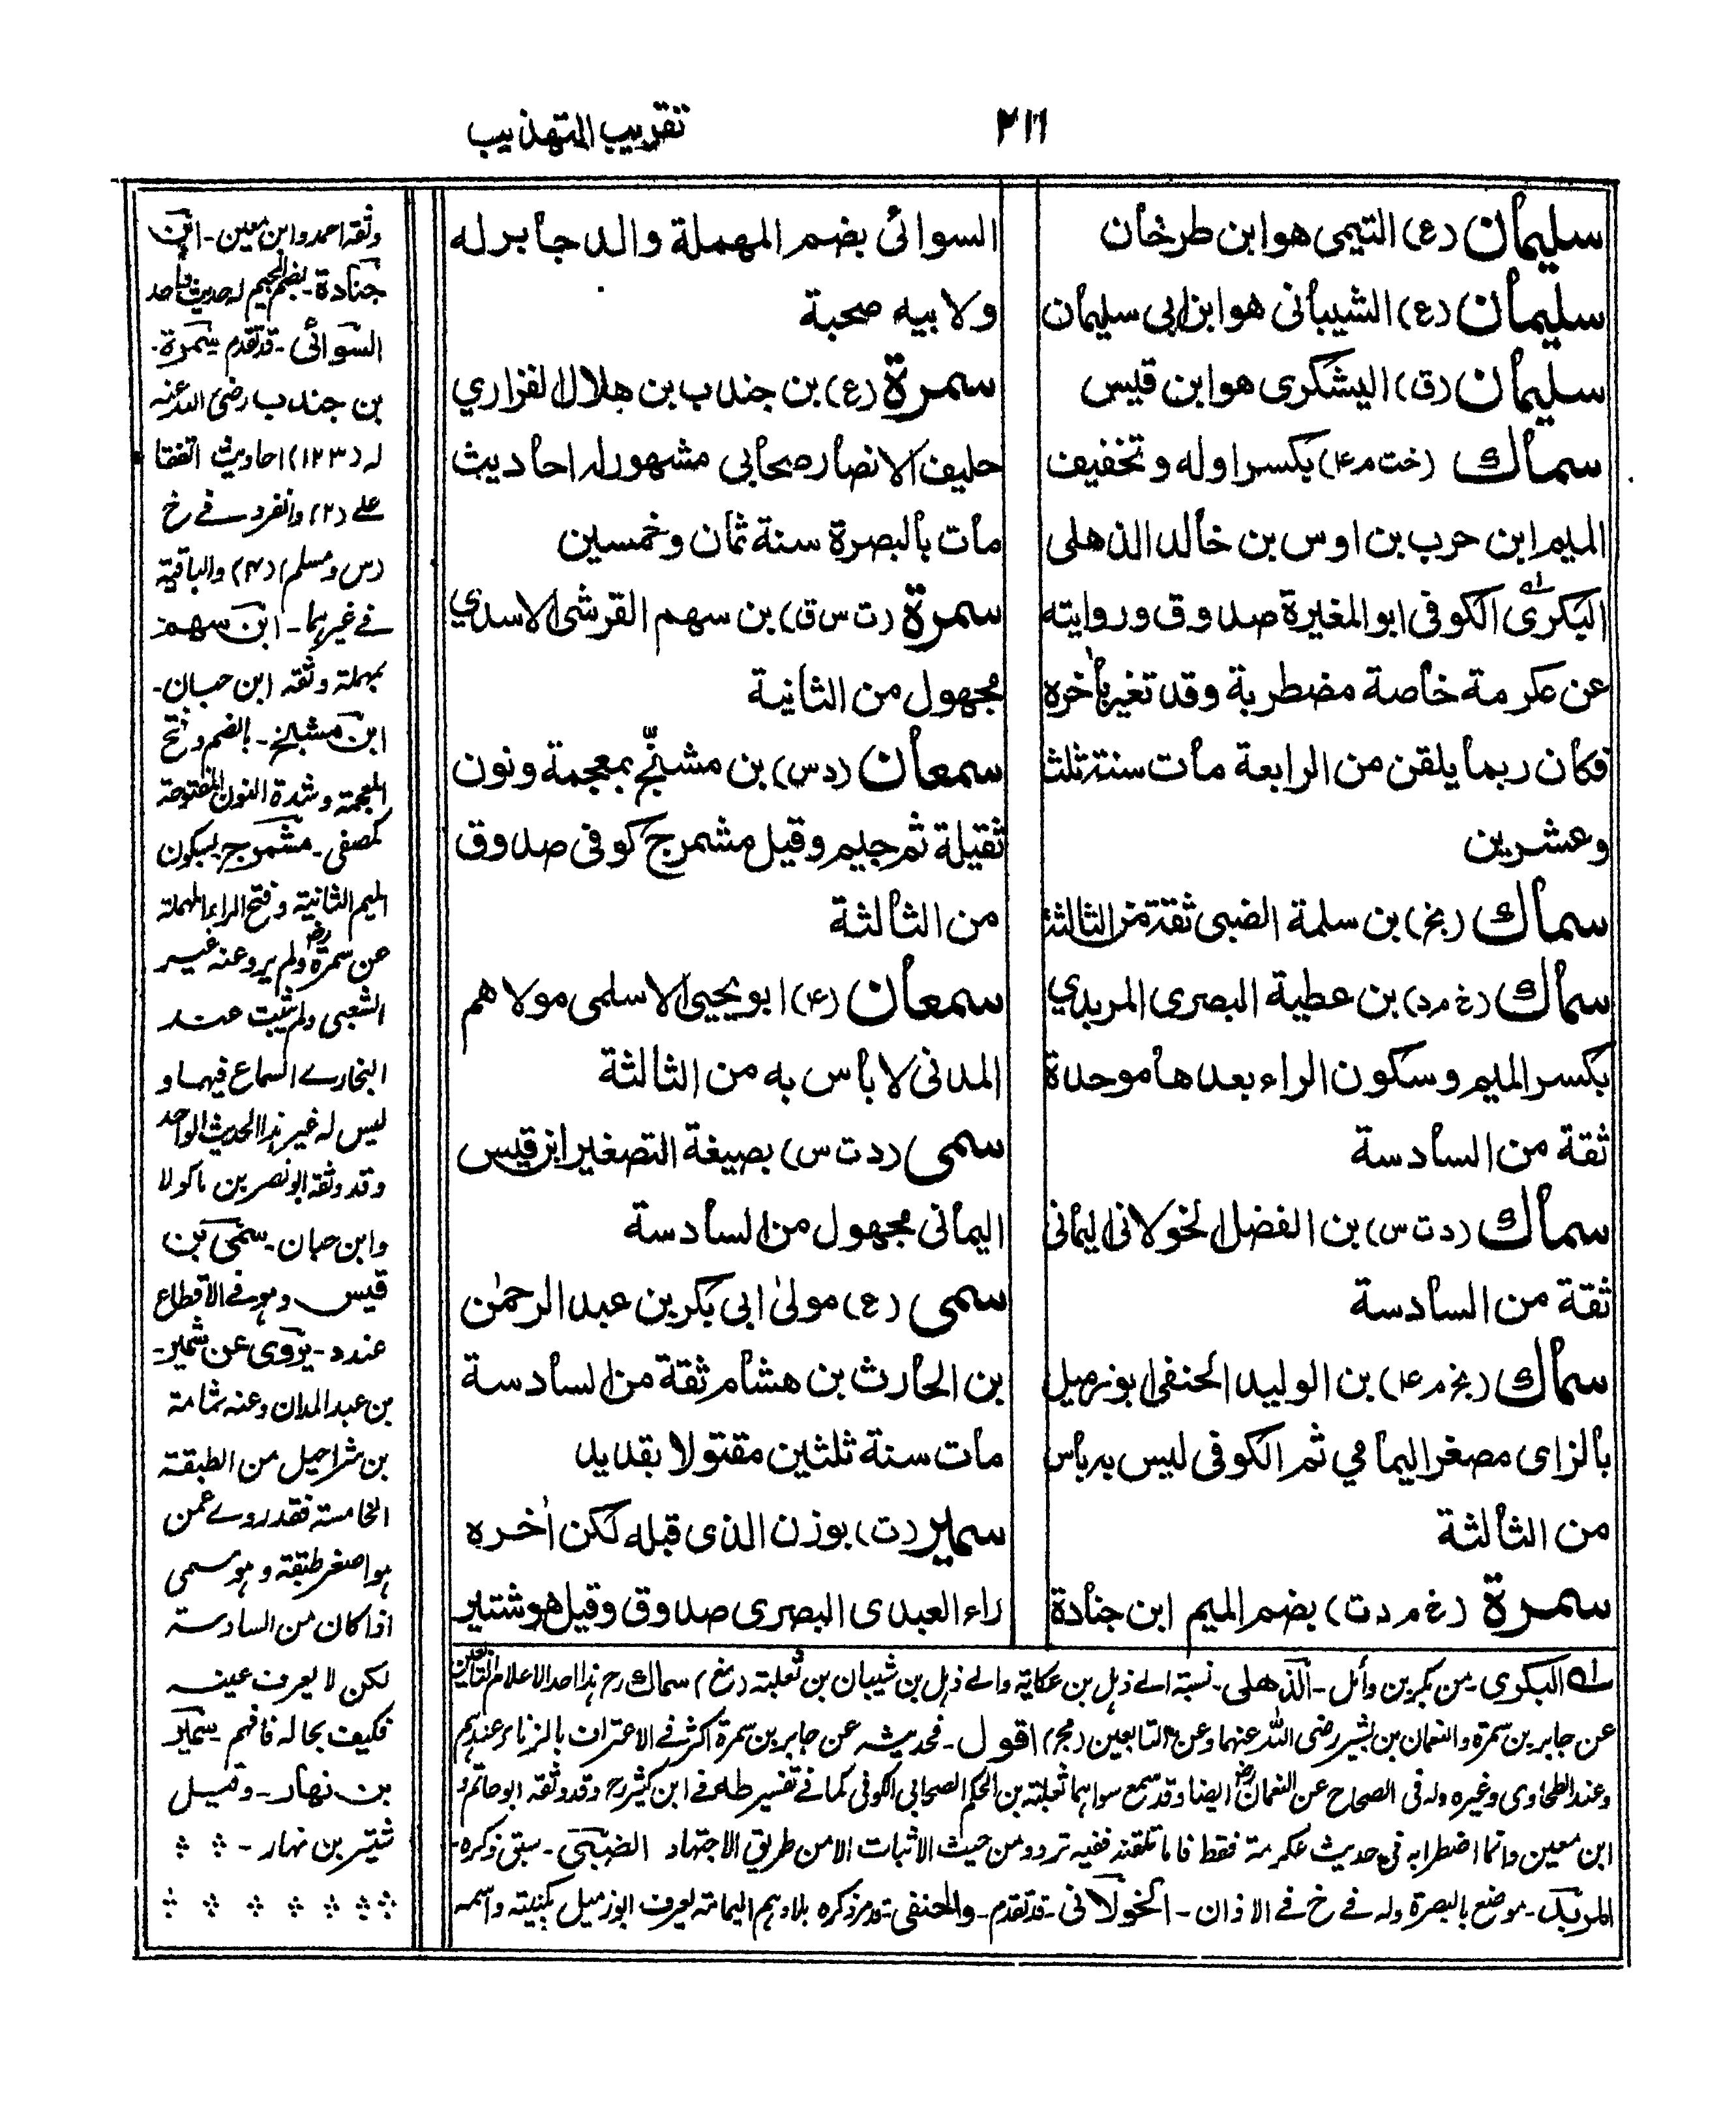 ٢١٦
تقريب التهذيب
سليمان (ع) التيمى هوابن طرخان
سليمان (ع) الشيبانى هوابن ابى سليمان
سليمان (ق) اليشكرى هوابن قيس
سماك (خت م ۴) بكسر اوله وتخفيف
الميم ابن حرب بن اوس بن خالد الذهلى
البكرى الكوفى ابو المغيرة صدوق وروايته
عن عكرمة خاصة مضطربة وقد تغير بأخره
فكان ربما يلقن من الرابعة مات سنة ثلث
وعشرين
سماك (بخ) بن سلمة الضبى ثقة من الثالثة
سماك (خ م د) بن عطية البصرى المربدي
بكسر الميم وسكون الراء بعدها موحدة
ثقة من السادسة
سماك (د ت س) بن الفضل الخولانى اليمانى
ثقة من السادسة
سماك (بخ م ۴) بن الوليد الحنفى ابو زميل
بالزاى مصغر اليمامي ثم الكوفى ليس به بأس
من الثالثة
سمرة (خ م د ت) بضم الميم ابن جنادة
السوائى بضم المهملة والد جابر له
ولابيه صحبة
سمرة (ع) بن جندب بن هلال الفزاري
حليف الانصار صحابى مشهور له احاديث
مات بالبصرة سنة ثمان وخمسين
سمرة (ت س ق) بن سهم القرشى الاسدي
مجهول من الثانية
سمعان (د س) بن مشنّج بمعجمة ونون
ثقيلة ثم جيم وقيل مشمرج كوفى صدوق
من الثالثة
سمعان (۴) ابو يحيى الاسلمى مولاهم
المدنى لا بأس به من الثالثة
سمى (د ت س) بصيغة التصغير ابن قيس
اليمانى مجهول من السادسة
سمى (ع) مولىٰ ابى بكر بن عبد الرحمٰن
بن الحارث بن هشام ثقة من السادسة
مات سنة ثلثين مقتولا بقديد
سمير (ت) بوزن الذى قبله لكن اٰخره
راء العبدى البصرى صدوق وقيل هو شتير
وثقه احمد وابن معين - ابن
جنادة - بضم الجيم له حديث واحد
السوائى - قد تقدم سمرة -
بن جندب رضى الله عنه
له (١٢٣) احاديث اتفقا
على (٢) وانفرد فى خ
ومسلم (۴) والباقية
فى غيرهما - ابن سهم
بمهملة وثقه ابن حبان -
ابن مشنج - بالضم وفتح
المعجمة وشدة النون المفتوحة
كمصفى - مشمرج بسكون
الميم الثانية وفتح الراء المهملة
عن سمرة رض ولم يرو عنه غير
الشعبى ولم يثبت عند
البخارى السماع فيهما و
ليس له غير هذا الحديث الواحد
وقد وثقه ابو نصر بن ماكولا
وابن حبان - سمى بن
قيس وهو فى الاقطاع
عند د - يروى عن شمير -
بن عبد المدان وعنه ثمامة
بن شراحيل من الطبقة
الخامسة فقد روى عمن
هو اصغر طبقة وهو سمى
اذا كان من السادسة
لكن لا يعرف عينه
فكيف بحاله فافهم - سمير
بن نهار - وقيل
شتير بن نهار -
له البكرى - من بكر بن وائل - الذهلى - نسبة الى ذهل بن عكاية والى ذهل بن شيبان بن ثعلبة (مغ) سماك رح هذا احد الاعلام التابعين
عن جابر بن سمرة والنعمان بن بشير رضى الله عنهما وعن التابعين (مجر) اقول - فحديثه عن جابر بن سمرة اكثر فى الاعتراف بالزناء عندهم
وعند الطحاوى وغيره وله فى الصحاح عن النعمان رض ايضا وقد سمع سواهما ثعلبة بن الحكم الصحابى الكوفى كما فى تفسير طه فى ابن كثير رح وقد وثقه ابو حاتم و
ابن معين وانما اضطرابه فى حديث عكرمة فقط فاما تلقنه ففيه تردد من حيث الاثبات الا من طريق الاجتهاد الضبى - سبق ذكره -
المربد - موضع بالبصرة وله فى خ فى الاذان - الخولانى - قد تقدم - والحنفى - قد مر ذكره بلا وهم اليمامة يعرف ابو زميل بكنيته واسمه